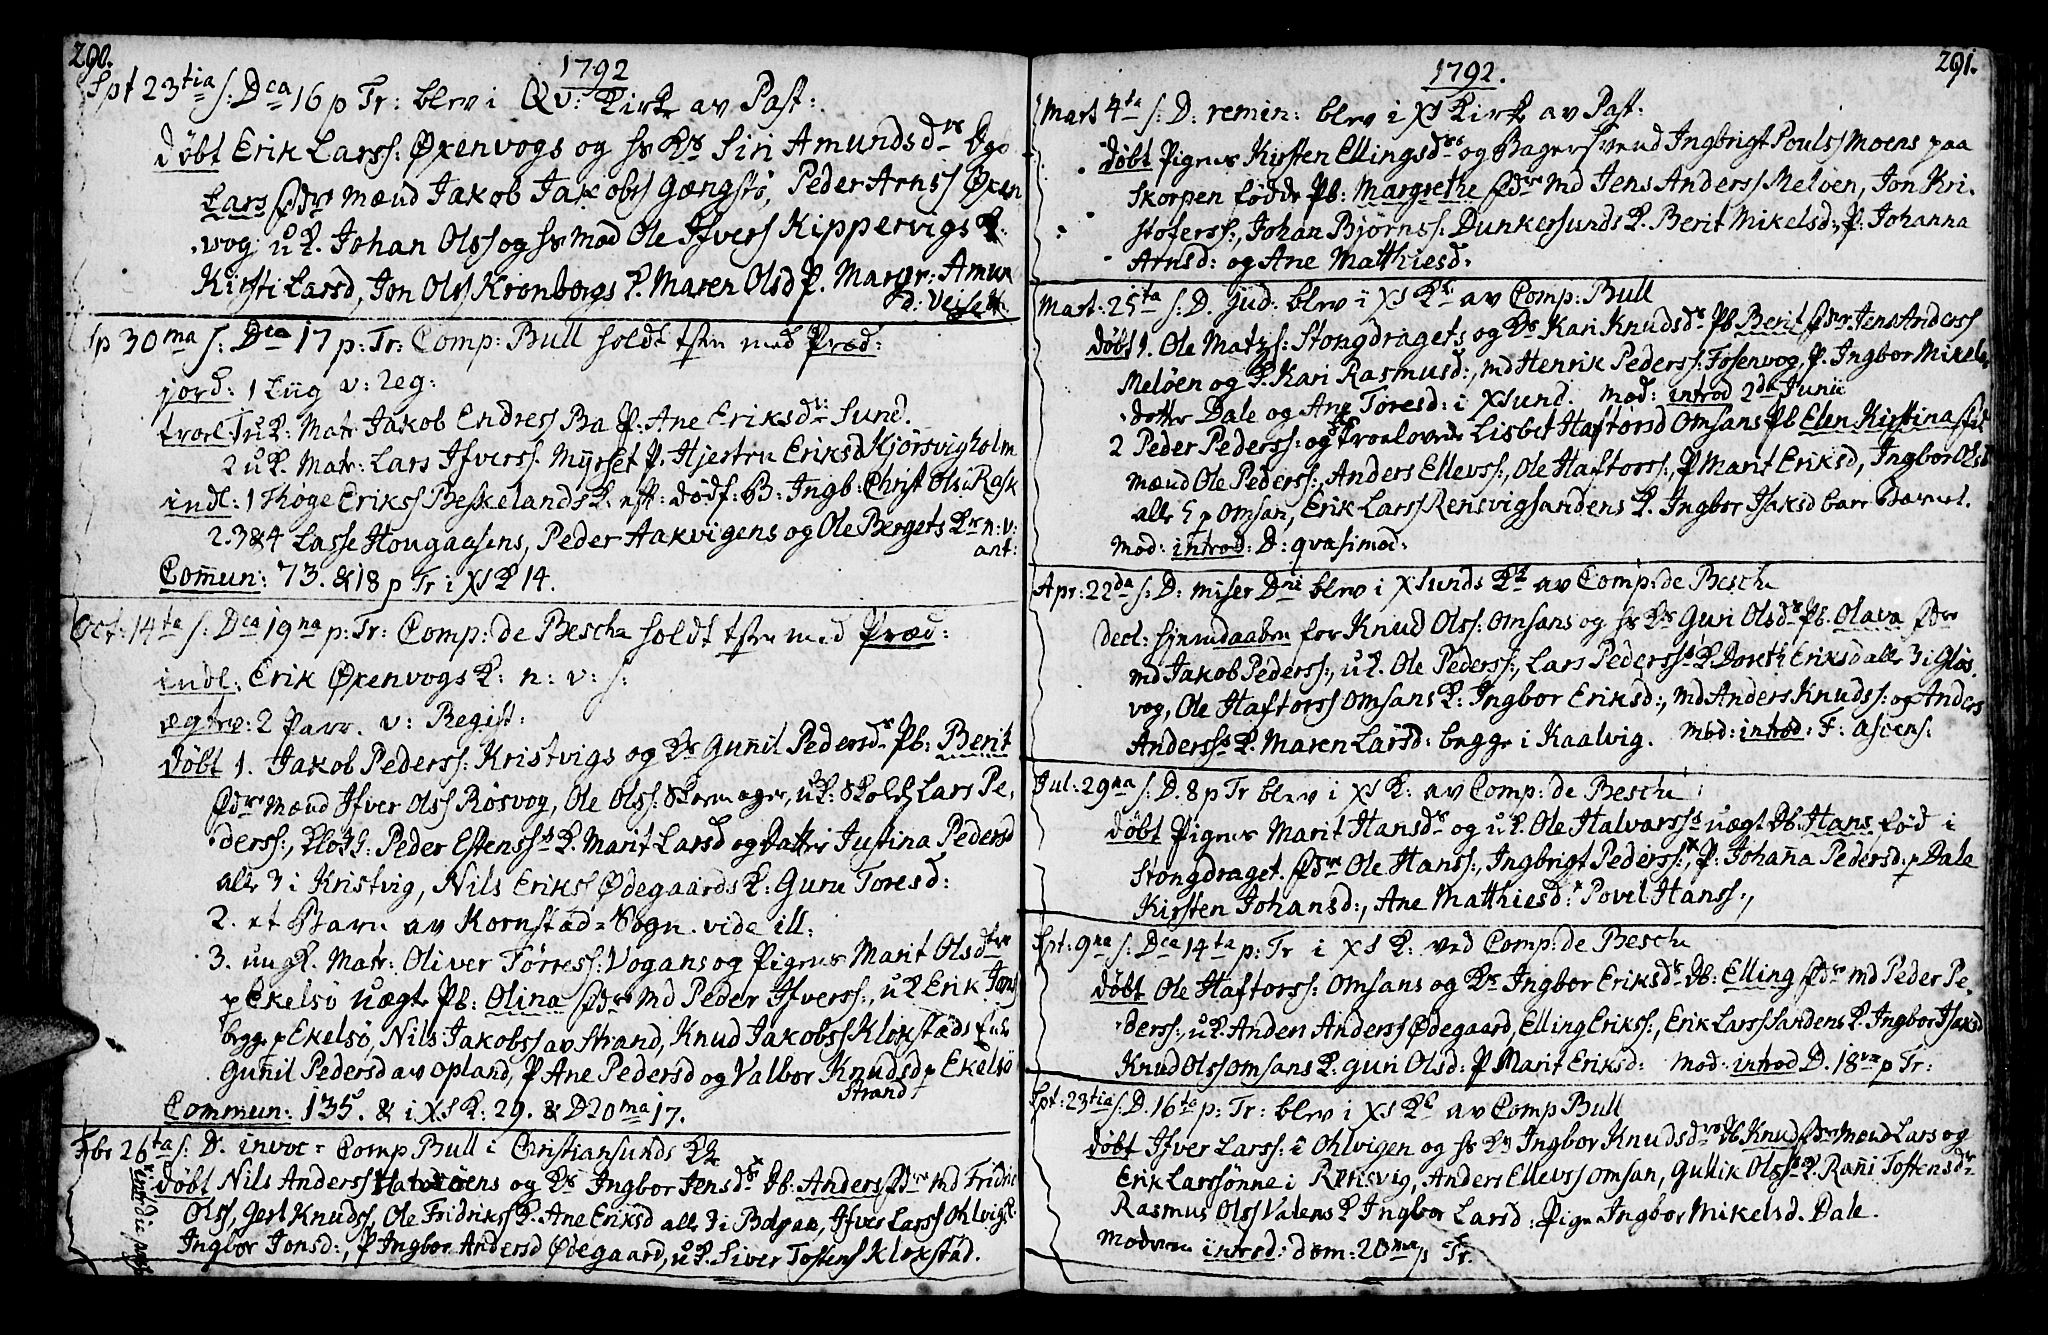 290.
1792
Spt 23tia s: Dca 16 p Tr: blev i Qv: Kirke av Past:
døbt Erik Larss: Øxenvogs og hs Ks Siri Amundsdrs
Lars fdrs mænd Jakob Jakobss Gængstø, Peder Arnss Øxen
vog uk. Johan Olss og hs mod Ole Ifvers Kippervigs K:
Kirsti Larsd, Jon Olss Kronborgs K. Maren Olsd P. Margr: Amun
d: Veiset
Sp 30ma s: Dca 17 p: Tr: Comp: Bull holdt tsten med Præd:
jord: 1 Liig v: Reg:
trol. 1 uk: Matr Jakob Endress Ba P. Ane Eriksdr: Sund.
2 uk. Matr: Lars Ifverss. Myrset P. Hjertru Eriksd Kjørsvigholm
indl: 1 Thøge Erikss Beskelands K. eft: dødf: B: Ingb: Christ Olsi Rosk
2. 3 & 4 Lasse Hougaasens, Peder Aakvigens og Ole Bergets Kr n: v:
ant:
Com̄un: 73. & 18 p Tr i XS K 14.
Oct: 14ta s: Dca 19na p: Tr: Comp: de Besche holdt tsten med Præd:
indl: Erik Øxenvogs K: n: v: s:
ægtev: 2 Parr. v: Regist:
døbt 1. Jakob Pederss: Kristvigs og Ks Gun̄il Pedersdrs Pb: Berit
fdrs mænd Ifver Olss Røsvog, Ole Olss: Skomager, uk: Skolh Lars Pe-
derss:, Klokk: Peder Estenss K. Marit Larsd og Datter Justina Pedersd
alle 3 i Kristvig, Nils Erikss Ødegaards K: Guru Toresd:
2. et Barn av Kornstad Sogn. vide ill:
3. ung K. Matr: Oliver Tørress: Vogans og Pigens Marit Olsdtr
p Ekelsø uægte Pb: Olina fdrs md Peder Ifverss:, uk Erik Jons
begge p Ekelsø, Nils Jakobss av Strand, Knud Jakobss Klokstads
Gun̄il Pedersd av opland, P Ane Pedersd og Valbor Knudsd p Ekelsø
Strand
Commun: 135. & i XS K: 29. & D 20ma 17.
Fbr 26ta s: D. invoc: Comp Bull i Christiansunds Kk
døbt Nils Anderss Hatøens og Ks Ingbor Jensdrs Db: Anders fdrs md Fridric
Olss, Gert Knudss, Ole Fridrikss K. Ane Eriksd alle 3 i Bolgen, Ifver Larss Ohlvigs
Ingbor Jonsd:, P Ingbor Andersd Ødegaard, uk. Siver Tostenss Klokstad.
291.
1792.
Mart 4ta s: D: remin: blev i XS Kirke av Past:
døbt Pigens Kirsten Ellingsdrs og Bagersvend Ingbrigt Poulss Moens paa
Skorpen fødde Pb: Margrethe fdrs md Jens Anderss Meløen, Jon Kri-
stoferss:, Johan Bjørnss: Dunkersunds K. Berit Mikelsd: P: Johanna
Arnsd: og Ane Matthiesd:
Mart: 25ta s: D. Jud: blev i XS Kk av Comp: Bull
døbt 1. Ole Matzs: Stongdragets og Ks Kari Knudsdrs Pb Berit fdrs Jens Anderss
Meløen og K. Kari Rasmusd:, md Henrik Pederss: Fosenvog, P. Ingbor Mikels
datter Dale og Ane Toresd: i XSund. mod: introd 2da Junii
2 Peder Pederss: og Troelovede Lisbet Haftorsd Omsans Pb Elen Kirstina
mænd Ole Pederss:, Anders Ellevss:, Ole Haftorss:, P Marit Eriksd, Ingbor Olsd
alle 5 p Omsan, Erik Larss Rensvigsandens K. Ingbor Isaksd bar Barnet.
mod: introd: D: qvasimod:
Apr: 22da s: D: miser Dni blev i XSunds Kk av Comp: de Besche
decl: hjemdaaben for Knud Olss: Omsans og hs Ks Guri Olsdrs Pb. Olava fdrs
md Jakob Pederss:, uk. Ole Pederss:, Lars Pederss K. Doreth Eriksd alle 3 i Gløs
vog, Ole Haftorss Omsans K: Ingbor Eriksd:, md Anders Knudss: og Anders
Anderss K. Maren Larsd: begge i Kaalvig. mod: introd: F: ascens:
Jul: 29na s: D. 8 p Tr blev i XS K: av Comp: de Besche
døbt Pigens Marit Hansdrs og uk. Ole Halvarss uægt Db: Hans fød i
Stongdraget. fdrs Ole Hanss:, Ingbrigt Pederss:, P: Johan̄a Pedersd: p Dale
Kirsten Johansd:, Ane Matthiesd: Povel Hanss:,
Spt: 9na s: Dca 14ta p: Tr i XS K: ved Comp: de Besche
døbt Ole Haftorss: Omsans og Ks Ingbor Eriksdrs Db: Elling fdrs md Peder Pe-
derss:, uk. Anders Anderss Ødegaard, Elling Erikss:, Erik Larss Sandens K. Ingbor Isaksd
Knud Olss Omsans K. Guri Olsd: P Marit Eriksd: mod: introd D. 18va p Tr:
Spt: 23tia s: D. 16ta p: Tr: blev i XS Kk av Comp Bull
døbt Ifver Larss: i Ohlvigen og hs K Ingbor Knudsdrs Db Knud fdrs mænd Lars og
Erik Larssønne i Rensvig, Anders Ellevss Omsan, Gullik Olss K. Ran̄i Tostensdr
Rasmus Olss Valens K Ingbor Larsd: Pige Ingbor Mikelsd. Dale.
Moderen introd: dom: 20ma p Tr.